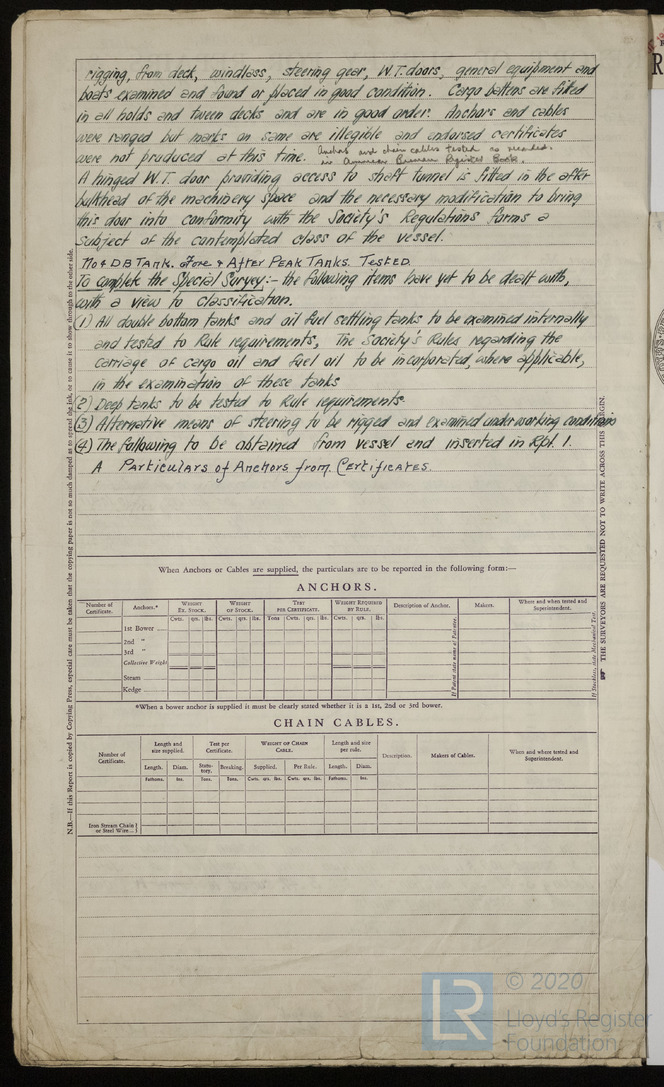 rigging, from deck, windlass, steering gear, W.T. doors, general equipment and
boats examined and found or placed in good condition. Cargo battens are fitted
in all holds and tween decks and are in good order. Anchors and cables
were ranged but marks on same are illegible and endorsed certificates
were not produced at this time. Anchors and chain cables tested as recorded
in American Bureau Register Book.
A hinged W.T. door providing access to shaft tunnel is fitted in the after
bulkhead of the machinery space and the necessary modification to bring
this door into conformity with the Society's Regulations forms a
subject of the contemplated class of the vessel.
No 4 D B Tank. Fore & After Peak Tanks. Tested.
To complete the Special Survey:- the following items have yet to be dealt with,
with a view to classification.
(1) All double bottom tanks and oil fuel settling tanks to be examined internally
and tested to Rule requirements, The Society's Rules regarding the
carriage of cargo oil and fuel oil to be incorporated, where applicable,
in the examination of these tanks
(2) Deep tanks to be tested to Rule requirements.
(3) Alternative means of steering to be rigged and examined under working conditions
(4) The following to be obtained from vessel and inserted in Rpt. 1.
A Particulars of Anchors from Certificates.
When Anchors or Cables are supplied, the particulars are to be reported in the following form:—
ANCHORS.
Number of Certificate. Anchors.* WEIGHT EX. STOCK. WEIGHT OF STOCK. TEST PER CERTIFICATE. WEIGHT REQUIRED BY RULE. Description of Anchor. Makers. Where and when tested and Superintendent.
Cwts. qrs. lbs. Cwts. qrs. lbs. Tons Cwts. qrs. lbs. Cwts. qrs. lbs.
1st Bower
2nd "
3rd "
Collective Weight
Stream
Kedge
If Patent state name of Patentee.
If Stockless, state Mechanical Test.
*When a bower anchor is supplied it must be clearly stated whether it is a 1st, 2nd or 3rd bower.
CHAIN CABLES.
Number of Certificate. Length and size supplied. Test per Certificate. WEIGHT OF CHAIN CABLE. Length and size per rule. Description. Makers of Cables. When and where tested and Superintendent.
Length. Diam. Statutory. Breaking. Supplied. Per Rule. Length. Diam.
Fathoms. Ins. Tons. Tons. Cwts. qrs. lbs. Cwts. qrs. lbs. Fathoms. Ins.
Iron Stream Chain
or Steel Wire
N.B.—If this Report is copied by Copying Press, especial care must be taken that the copying paper is not so much damped as to spread the ink, or to cause it to show through to the other side.
THE SURVEYORS ARE REQUESTED NOT TO WRITE ACROSS THIS MARGIN.
LR
© 2020
Lloyd's Register
Foundation